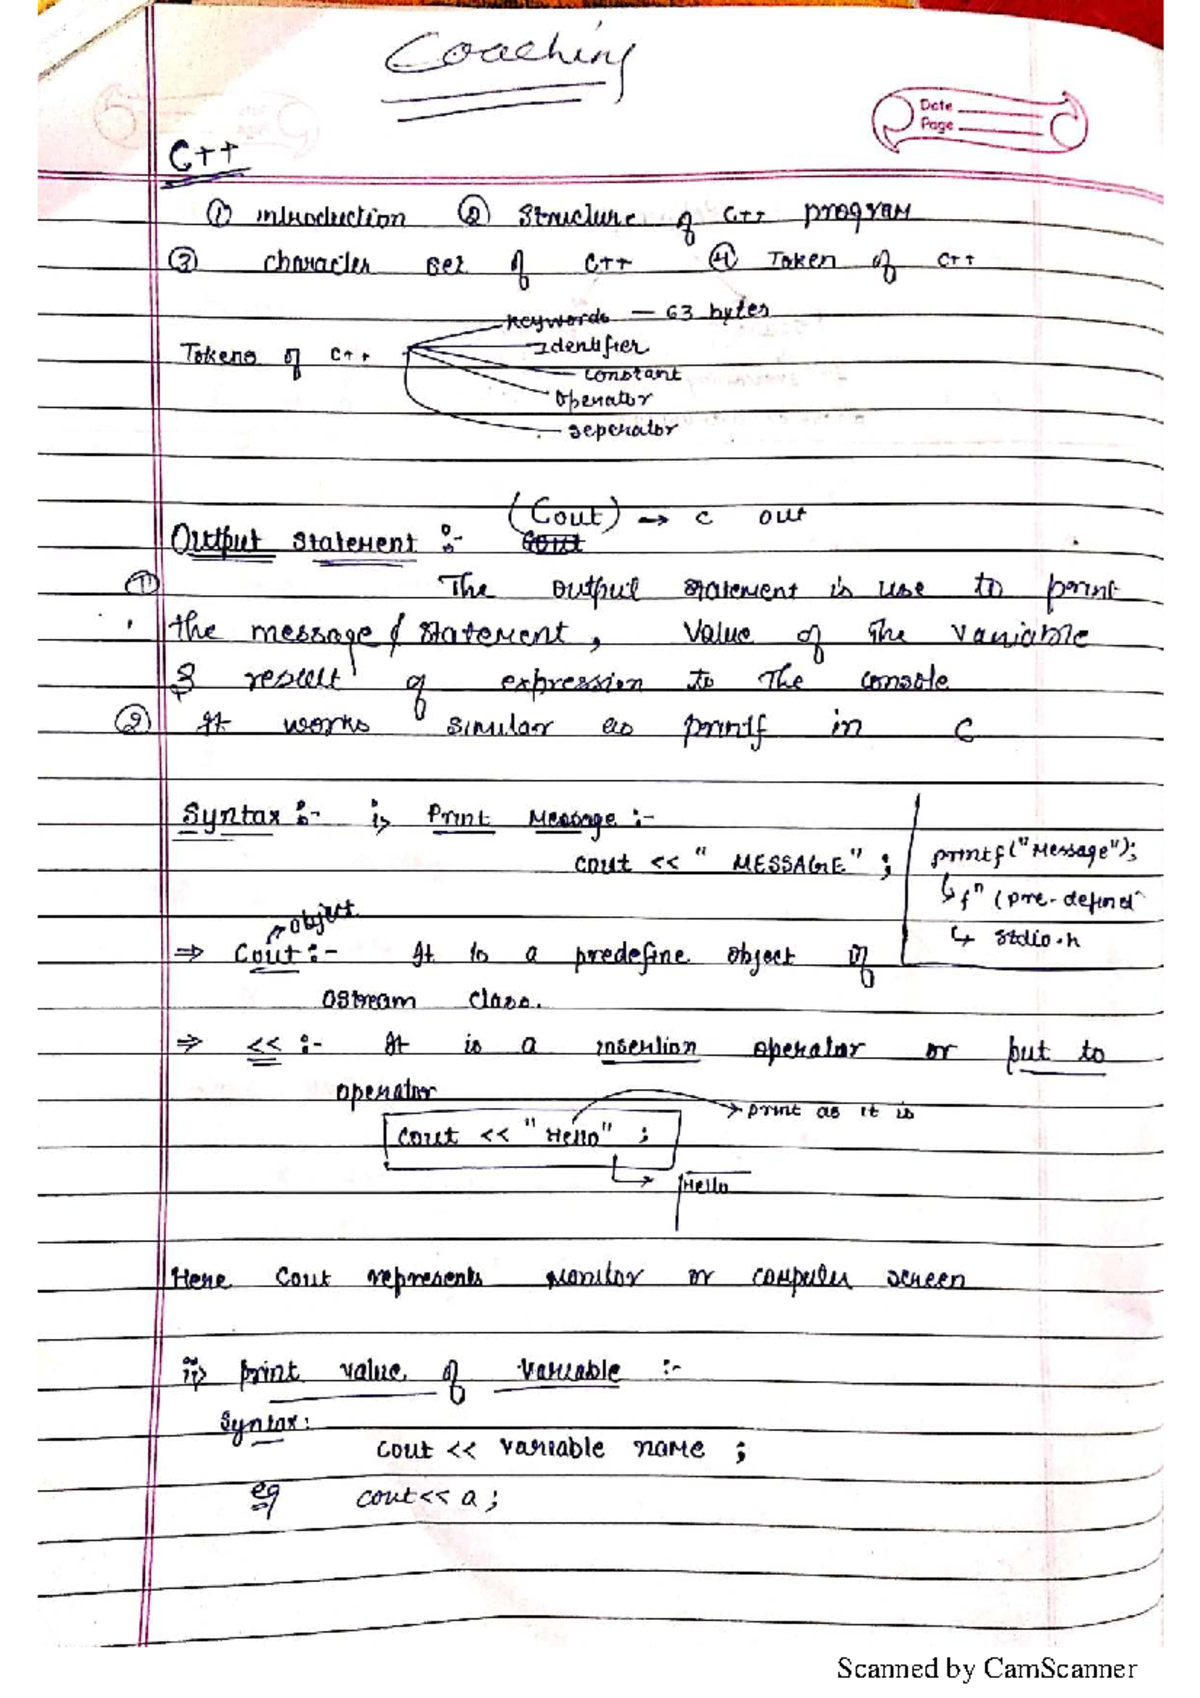 Coaching
Date
Page
C++
① introduction ② structure of C++ program
③ character set of C++ ④ Token of C++
Keywords — 63 bytes
Tokens of C++
Identifier
constant
operator
seperator
(Cout) → c out
Output statement :-
① The output statement is use to print
the message / statement, value of the variable
& result of expression to the console
② It works similar as printf in C
Syntax :- i> Print Message :-
cout << " MESSAGE" ;
printf("Message");
↳ fⁿ (pre-defined
↳ stdio.h
object
⇒ Cout :- It is a predefine object of
ostream class.
⇒ << :- It is a insertion operator or put to
operator
→ print as it is
Cout << "Hello" ;
Hello
Here Cout represents monitor or computer screen
ii> print value of variable :-
Syntax:
cout << variable name ;
eg cout<< a ;
Scanned by CamScanner